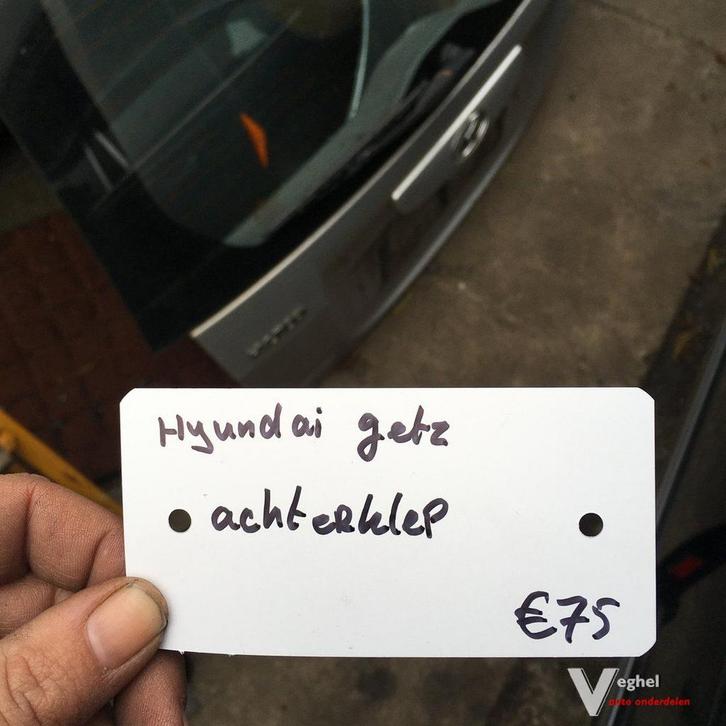 Hyundai getz
achterklep
€75
Veghel
auto onderdelen